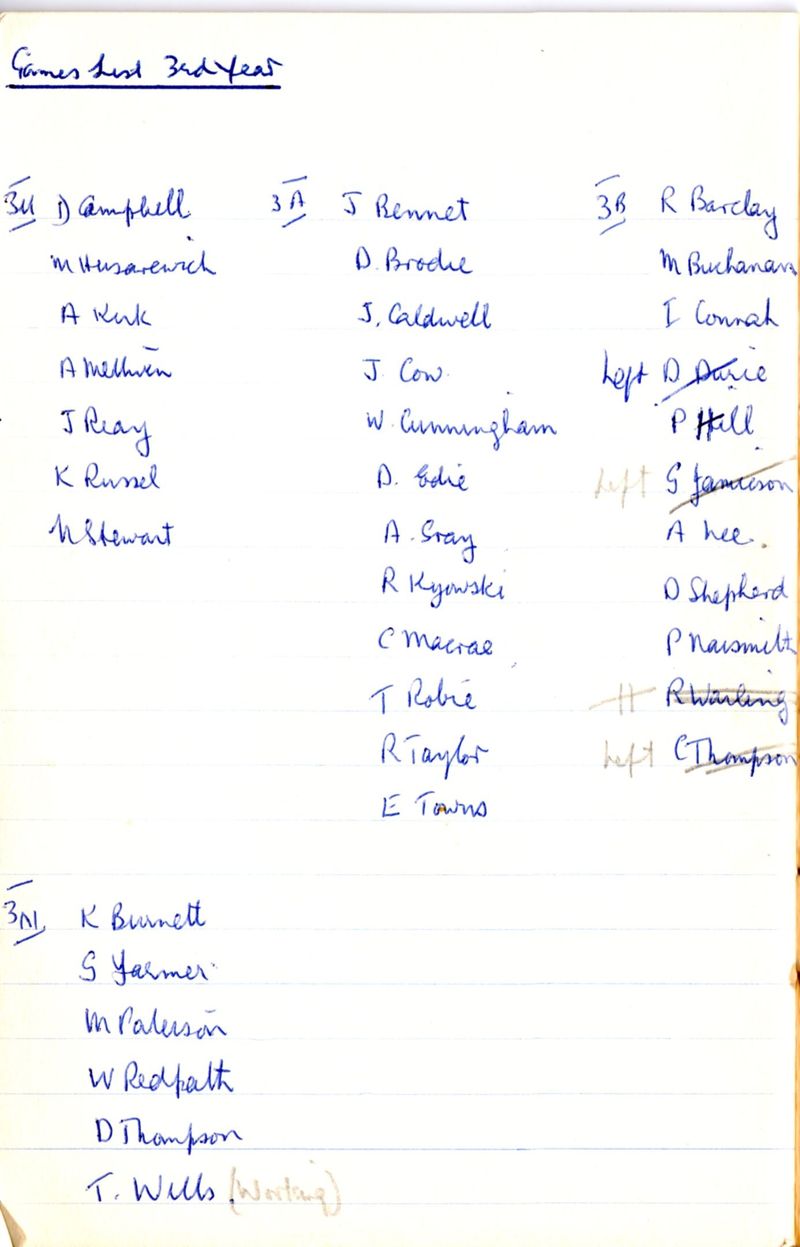 Games List 3rd Year
3U D Campbell
M Husarewich
A Kirk
A Methven
J Reay
K Russel
N Stewart
3A J Bennet
D. Brodie
J. Caldwell
J. Cow.
W. Cunningham
D. Edie
A. Gray
R Kyowski
C Macrae
T Robie
R Taylor
E Towns
3B R Barclay
M Buchanan
I Connah
Left D Durie
P Hill
Left G Jamieson
A Lee.
D Shepherd
P Naismith
R Warling
Left C Thompson
K Burnett
G Farmer
M Paterson
W Redpath
D Thompson
T. Wells (Working)